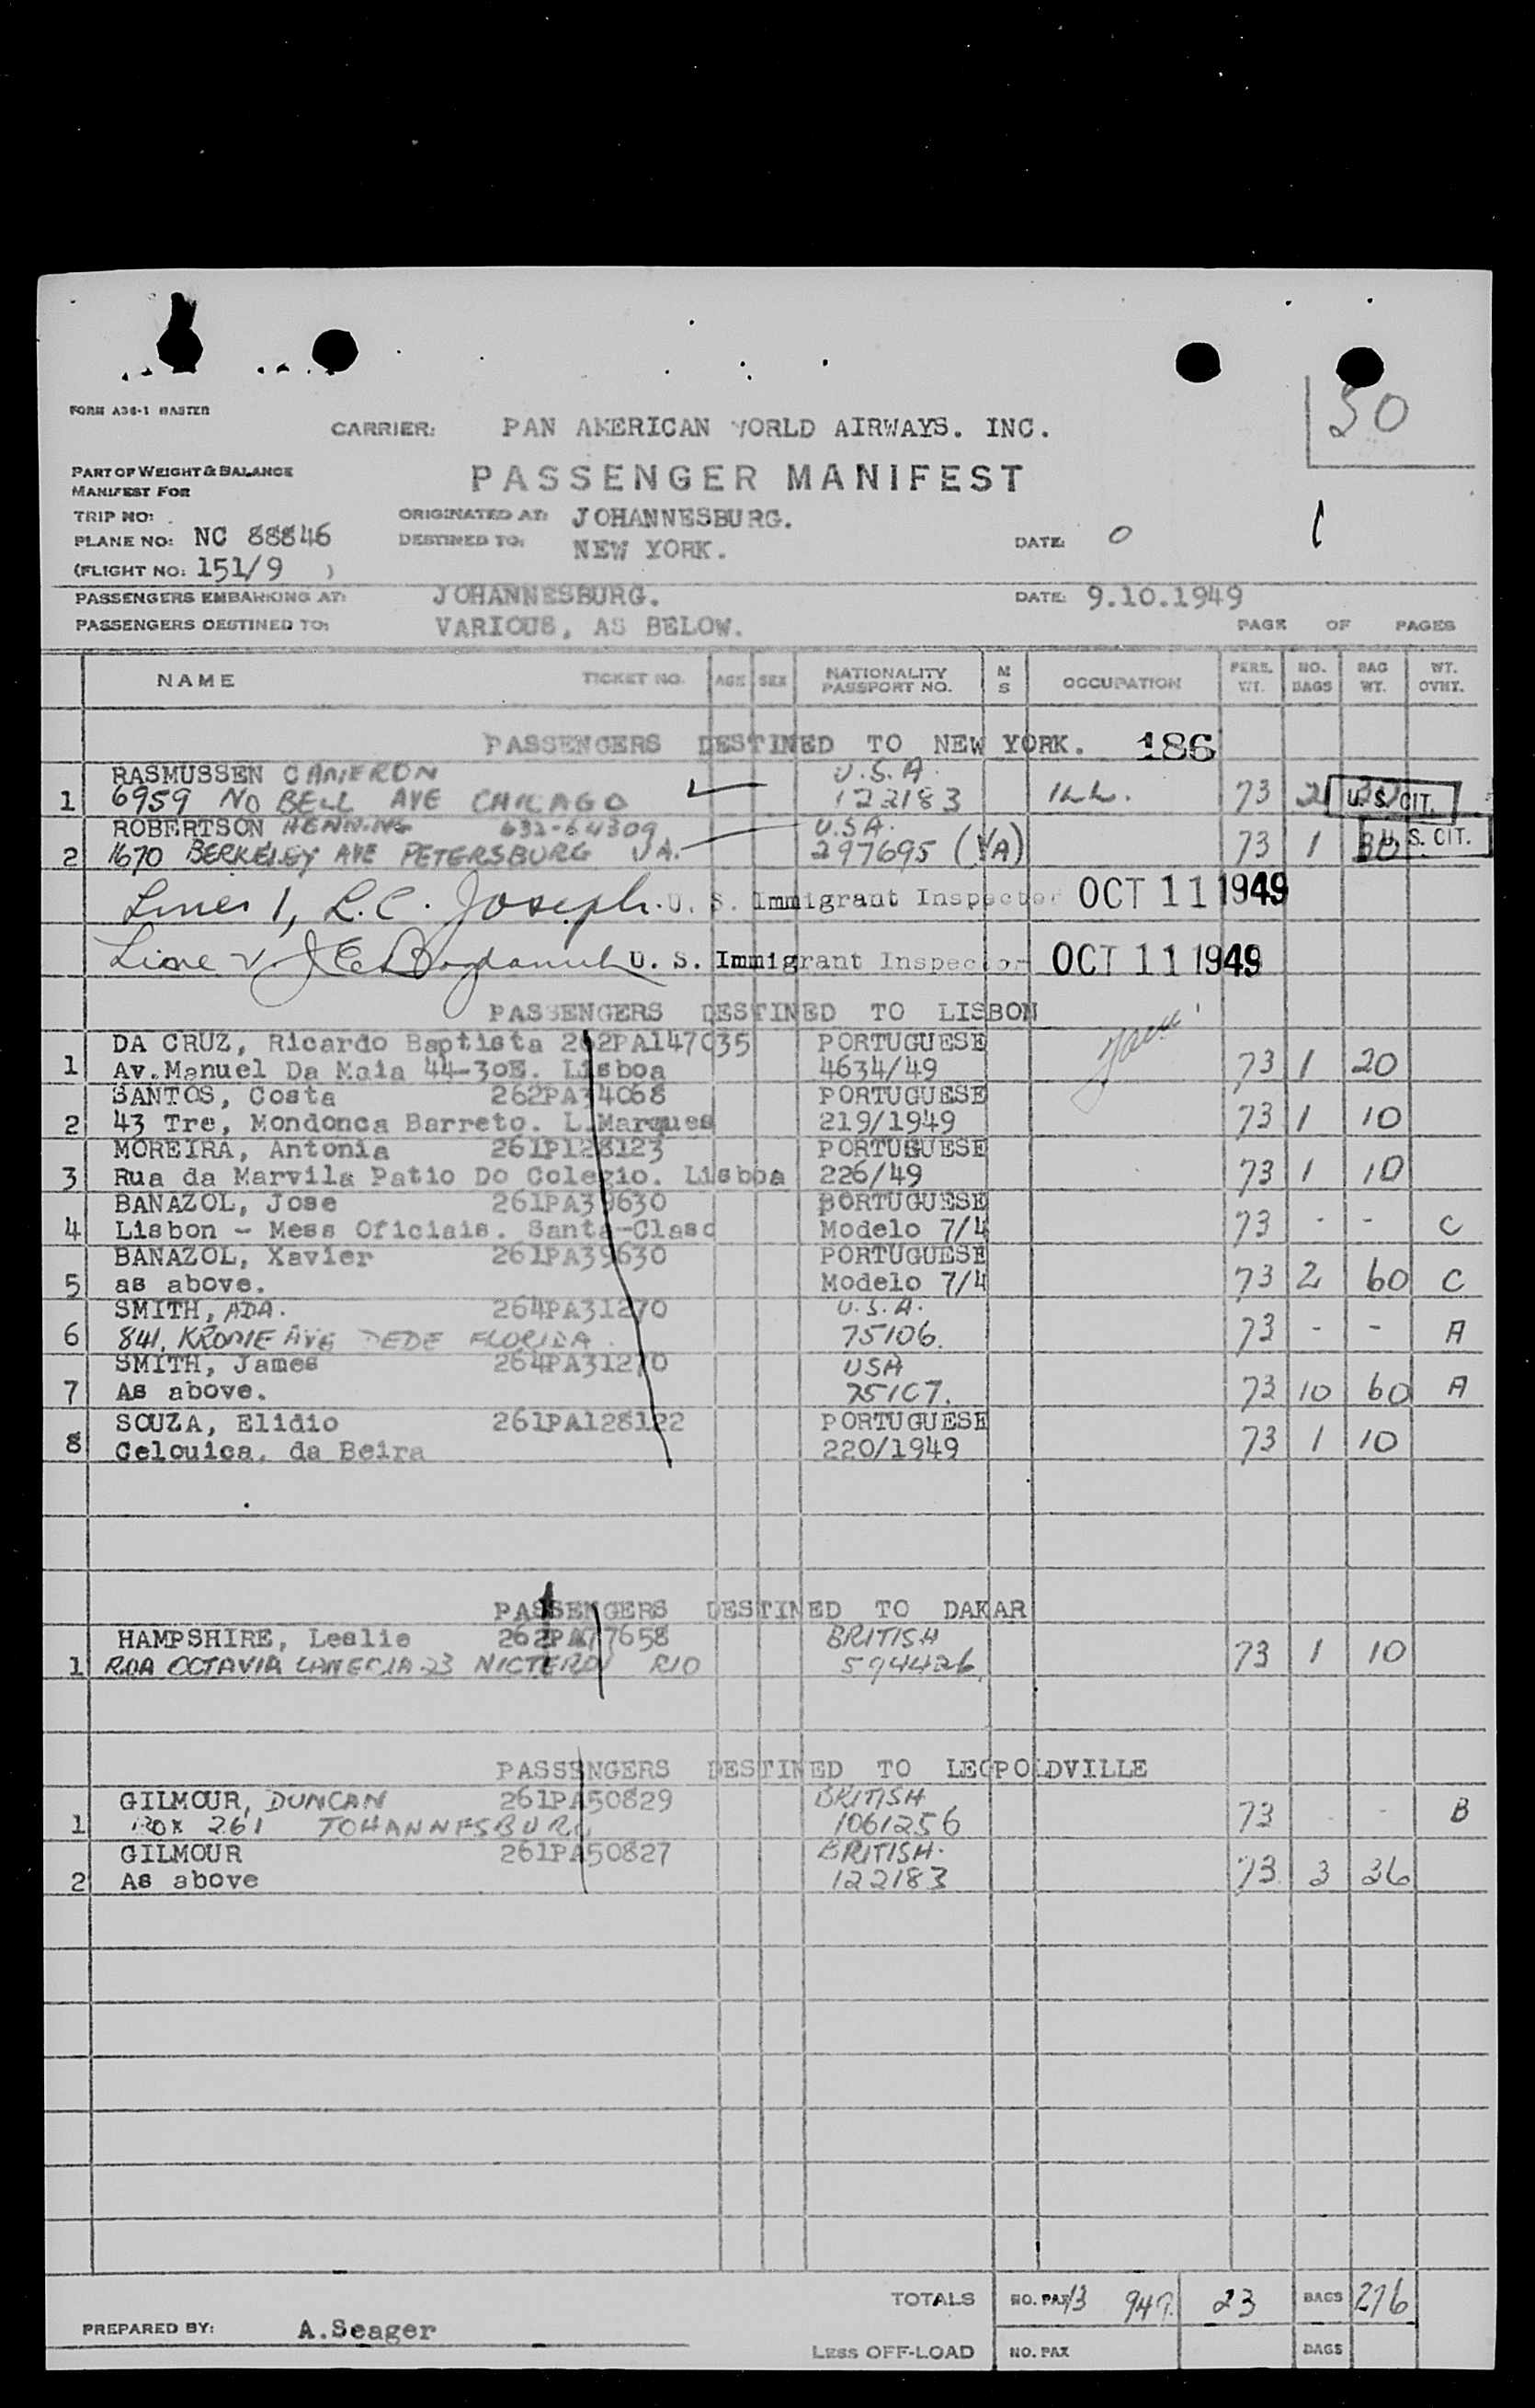 50
FORM A36-1 MASTER
CARRIER: PAN AMERICAN WORLD AIRWAYS. INC.
PART OF WEIGHT & BALANCE
MANIFEST FOR
PASSENGER MANIFEST
TRIP NO:
ORIGINATED AT: JOHANNESBURG.
PLANE NO: NC 88846
DESTINED TO: NEW YORK.
DATE: 0
(FLIGHT NO: 151/9 )
PASSENGERS EMBARKING AT: JOHANNESBURG. DATE: 9.10.1949
PASSENGERS DESTINED TO: VARIOUS, AS BELOW. PAGE OF PAGES
NAME TICKET NO. AGE SEX NATIONALITY PASSPORT NO. M S OCCUPATION PERS. WT. NO. BAGS BAG WT. WT. OVHT.
PASSENGERS DESTINED TO NEW YORK. 186
RASMUSSEN CAMERON U.S.A.
1 6959 NO BELL AVE CHICAGO 122183 73 2 U.S. CIT.
ROBERTSON HENNING 632-64309 U.S.A.
2 1670 BERKELEY AVE PETERSBURG VA. 297695 (VA) 73 1 30 U.S. CIT.
Lines 1, L.C. Joseph. U. S. Immigrant Inspector OCT 11 1949
Line 2. U. S. Immigrant Inspector OCT 11 1949
PASSENGERS DESTINED TO LISBON
DA CRUZ, Ricardo Baptista 262PA147035 PORTUGUESE
1 Av. Manuel Da Maia 44-30E. Lisboa 4634/49 73 1 20
SANTOS, Costa 262PA34068 PORTUGUESE
2 43 Tre, Mondonca Barreto. L.Marques 219/1949 73 1 10
MOREIRA, Antonia 261P128123 PORTUGUESE
3 Rua da Marvila Patio Do Colegio. Lisboa 226/49 73 1 10
BANAZOL, Jose 261PA39630 PORTUGUESE
4 Lisbon - Mess Oficiais. Santa-Clasc Modelo 7/4 73 - - C
BANAZOL, Xavier 261PA39630 PORTUGUESE
5 as above. Modelo 7/4 73 2 60 C
SMITH, ADA. 264PA31270 U.S.A.
6 841, KROME AVE DEDE FLORIDA. 75106. 73 - - A
SMITH, James 264PA31270 USA
7 As above. 75107. 73 10 60 A
SOUZA, Elidio 261PA128122 PORTUGUESE
8 Celouica, da Beira 220/1949 73 1 10
PASSENGERS DESTINED TO DAKAR
HAMPSHIRE, Leslie 262PA77658 BRITISH
1 RUA OCTAVIA 23 NICTEROI RIO 594426. 73 1 10
PASSSNGERS DESTINED TO LEOPOLDVILLE
GILMOUR, DUNCAN 261PA50829 BRITISH
1 BOX 261 JOHANNESBURG 1061256 73 - - B
GILMOUR 261PA50827 BRITISH.
2 As above 122183 73 3 36
TOTALS NO. PAX 13 949. 23 BAGS 276
PREPARED BY: A.Seager
LESS OFF-LOAD NO. PAX BAGS